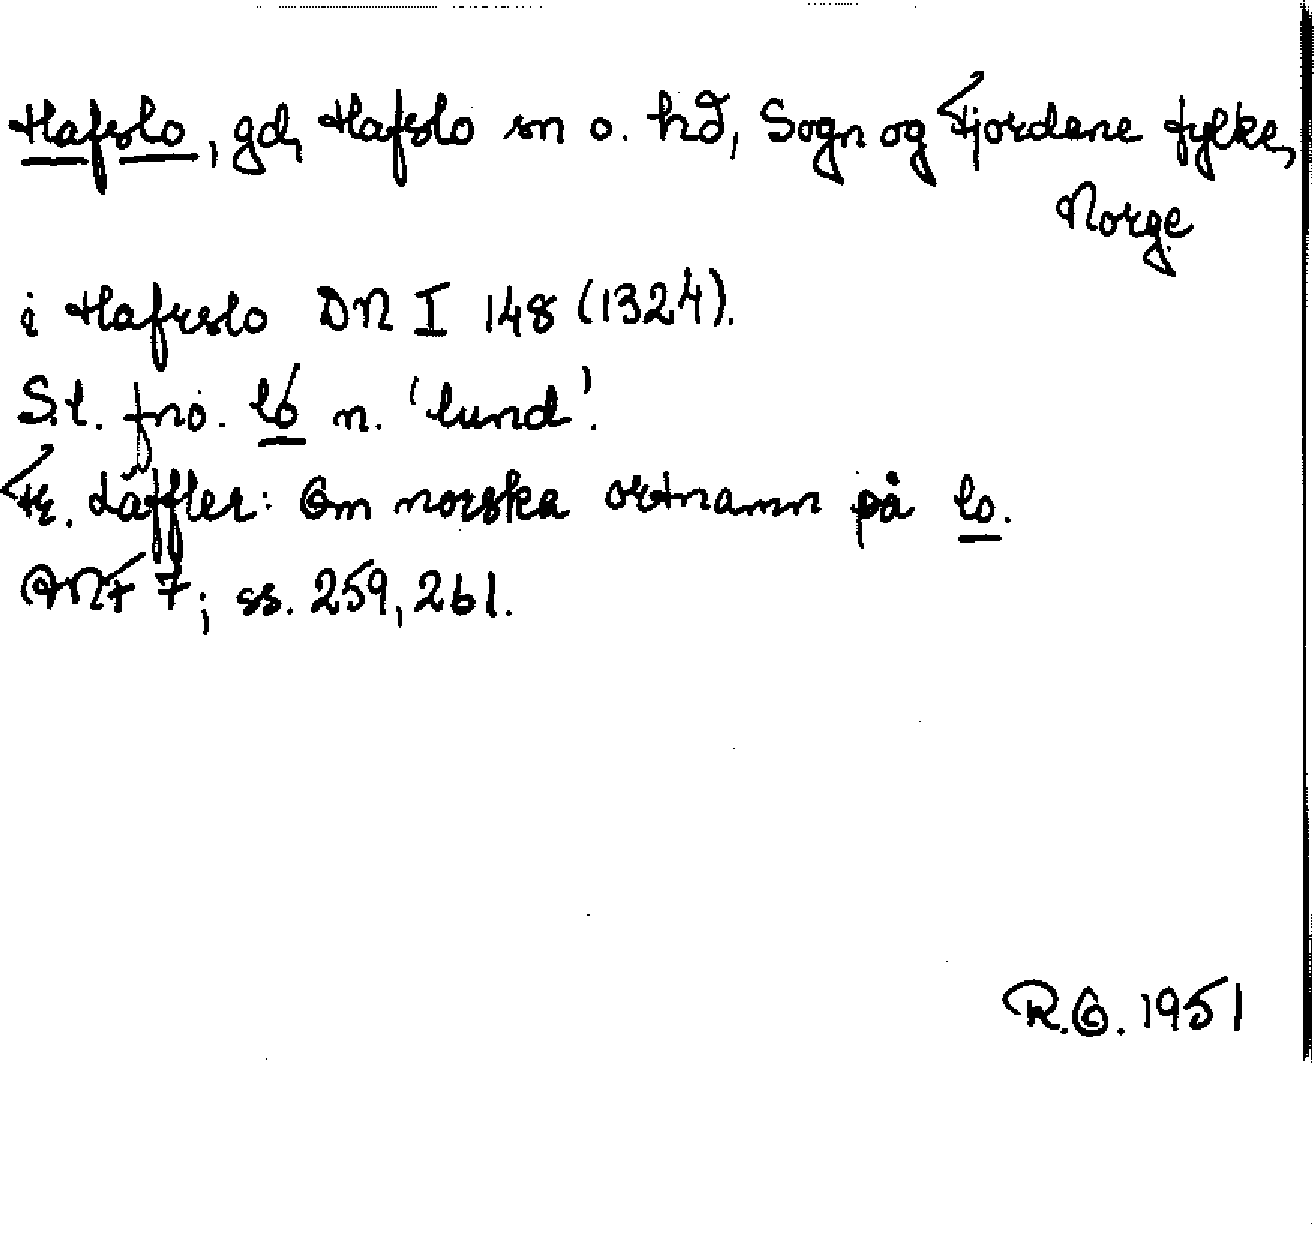 Hafslo, gd, Hafslo sn o. hd, Sogn og Fjordane fylke,
Norge
i Hafrslo DN I 148 (1324).
S.l. fno. ló n. 'lund'.
Fr. Läffler: Om norska ortnamn på lo.
ANF 7; ss. 259, 261.
R.O. 1951